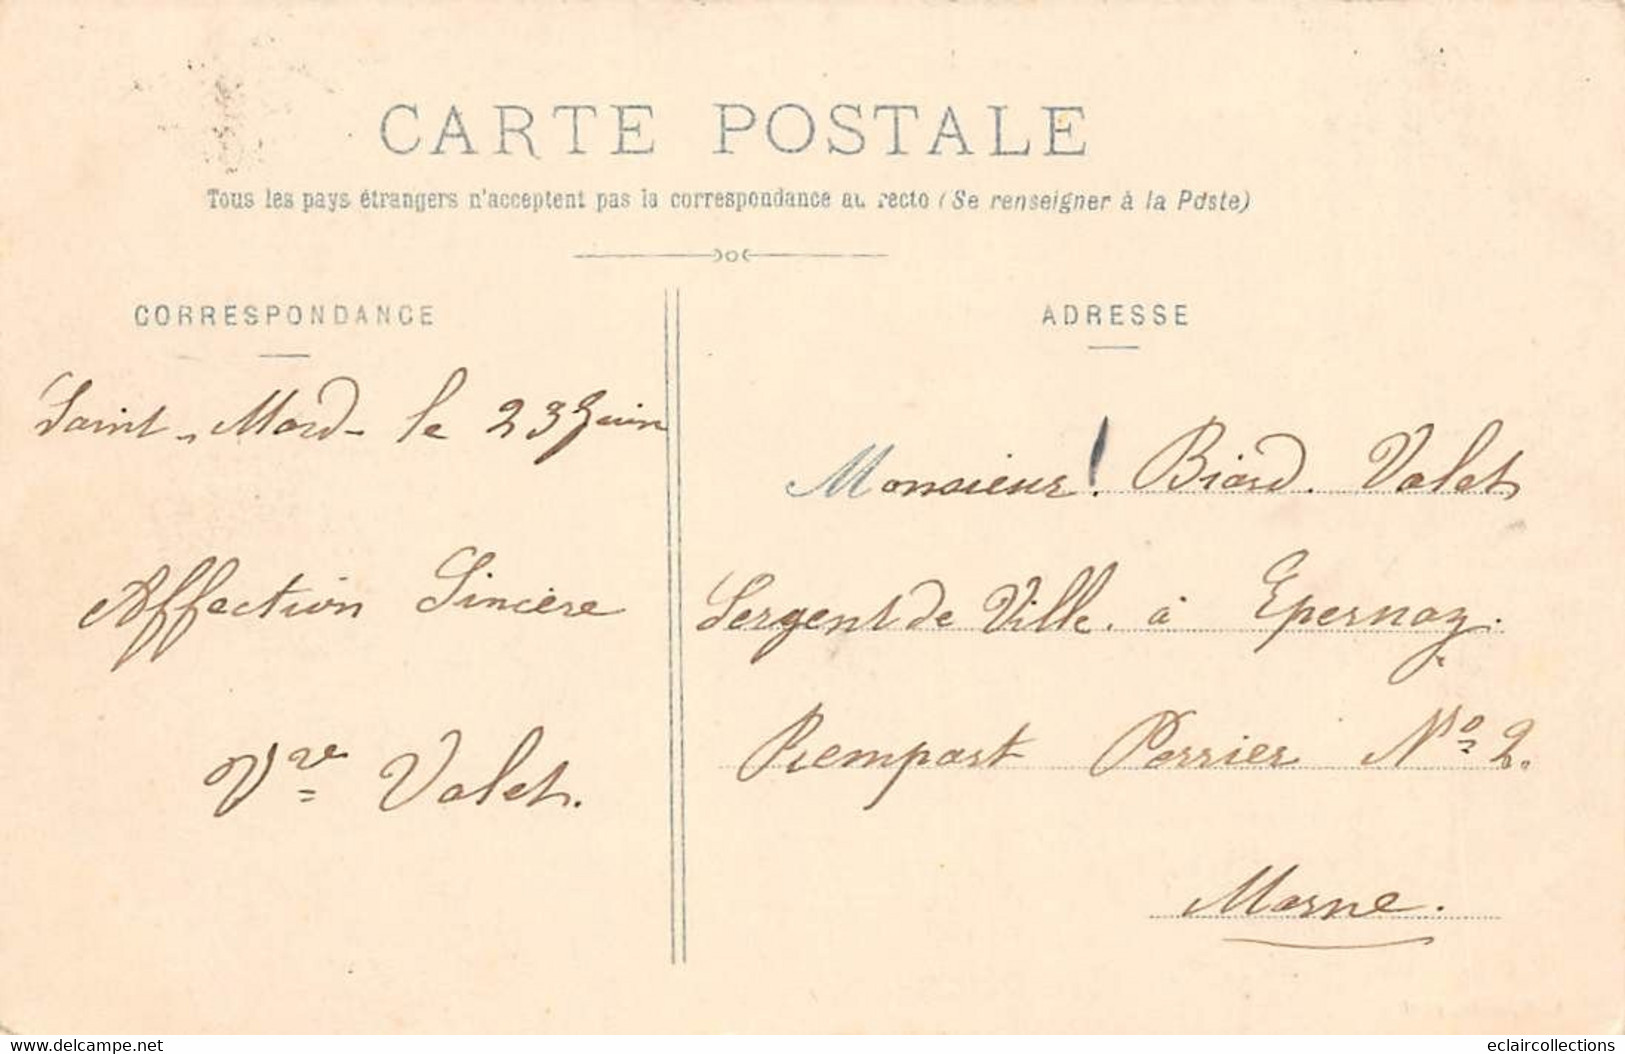 CARTE POSTALE
Tous les pays étrangers n'acceptent pas la correspondance au recto (Se renseigner à la Poste)
CORRESPONDANCE
Saint-Mard le 23 Juin
Affection Sincère
Vve Valet.
ADRESSE
Monsieur ! Biard. Valet
Sergent de Ville. à Epernay.
Rempart Perrier No 2.
Marne.
www.delcampe.net
eclaircollections